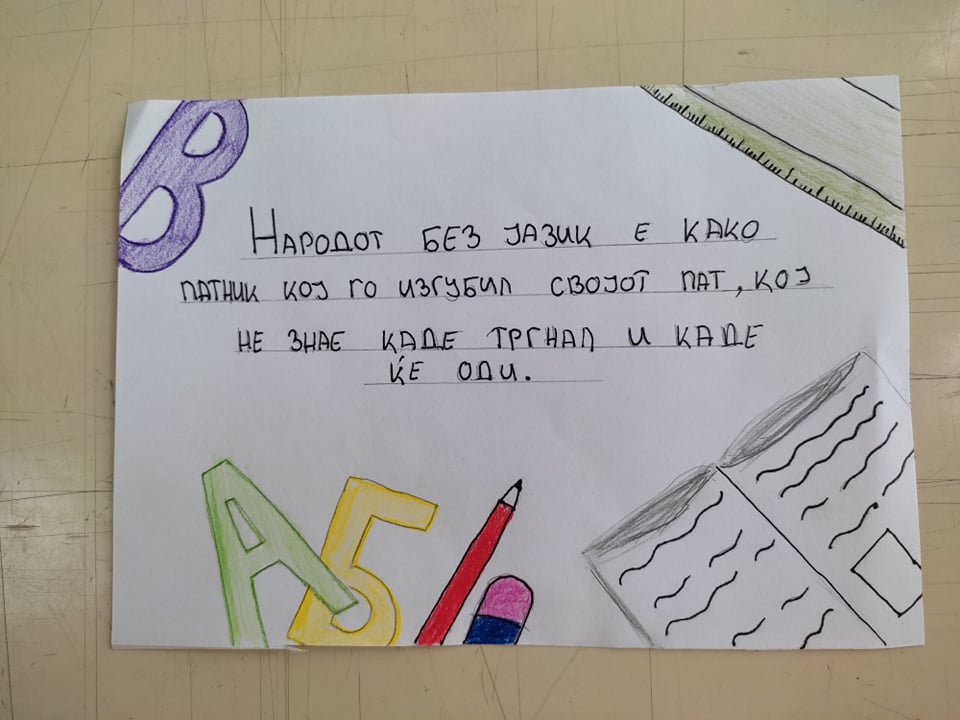 НАРОДОТ БЕЗ ЈАЗИК Е КАКО
ПАТНИК КОЈ ГО ИЗГУБИЛ СВОЈОТ ПАТ, КОЈ
НЕ ЗНАЕ КАДЕ ТРГНАЛ И КАДЕ
ЌЕ ОДИ.
В
А Б